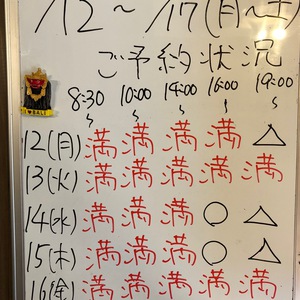 /12～/17(月～土)
ご予約状況
8:30～ 10:00～ 14:00～ 16:00～ 19:00～
12(月) 満 満 満 満 △
13(火) 満 満 満 満 満
14(水) 満 満 満 ○ △
15(木) 満 満 満 ○ △
16(金) 満 満 満 満 満